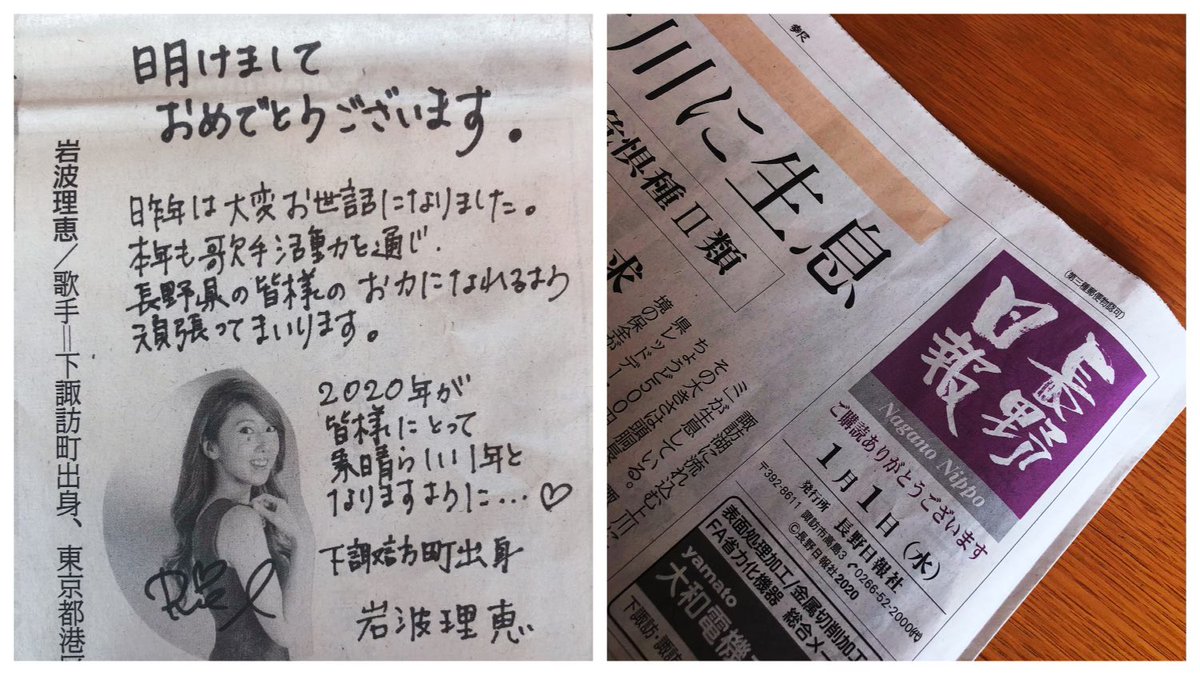 明けまして
おめでとうございます。
昨年は大変お世話になりました。
本年も歌手活動を通じ、
長野県の皆様のお力になれるよう
頑張ってまいります。
2020年が
皆様にとって
素晴らしい1年と
なりますように…♡
下諏訪町出身
岩波理恵
岩波理恵/歌手=下諏訪町出身、東京都港区
川に生息
危惧種Ⅱ類
求
諏訪湖に流れ込む上川
ミ」が生息している。
その大きさは頭胴長
ちょうど500円
県レッドデー
境の保全が
(第三種郵便物認可)
長野日報
Nagano Nippo
ご購読ありがとうございます
1月1日(水)
発行所 長野日報社
〒392-8611 諏訪市高島3 ☎0266-52-2000(代)
©長野日報社2020
表面処理加工/金属切削加工
FA省力化機器 総合メー
yamato
大和電機
下諏訪・諏訪